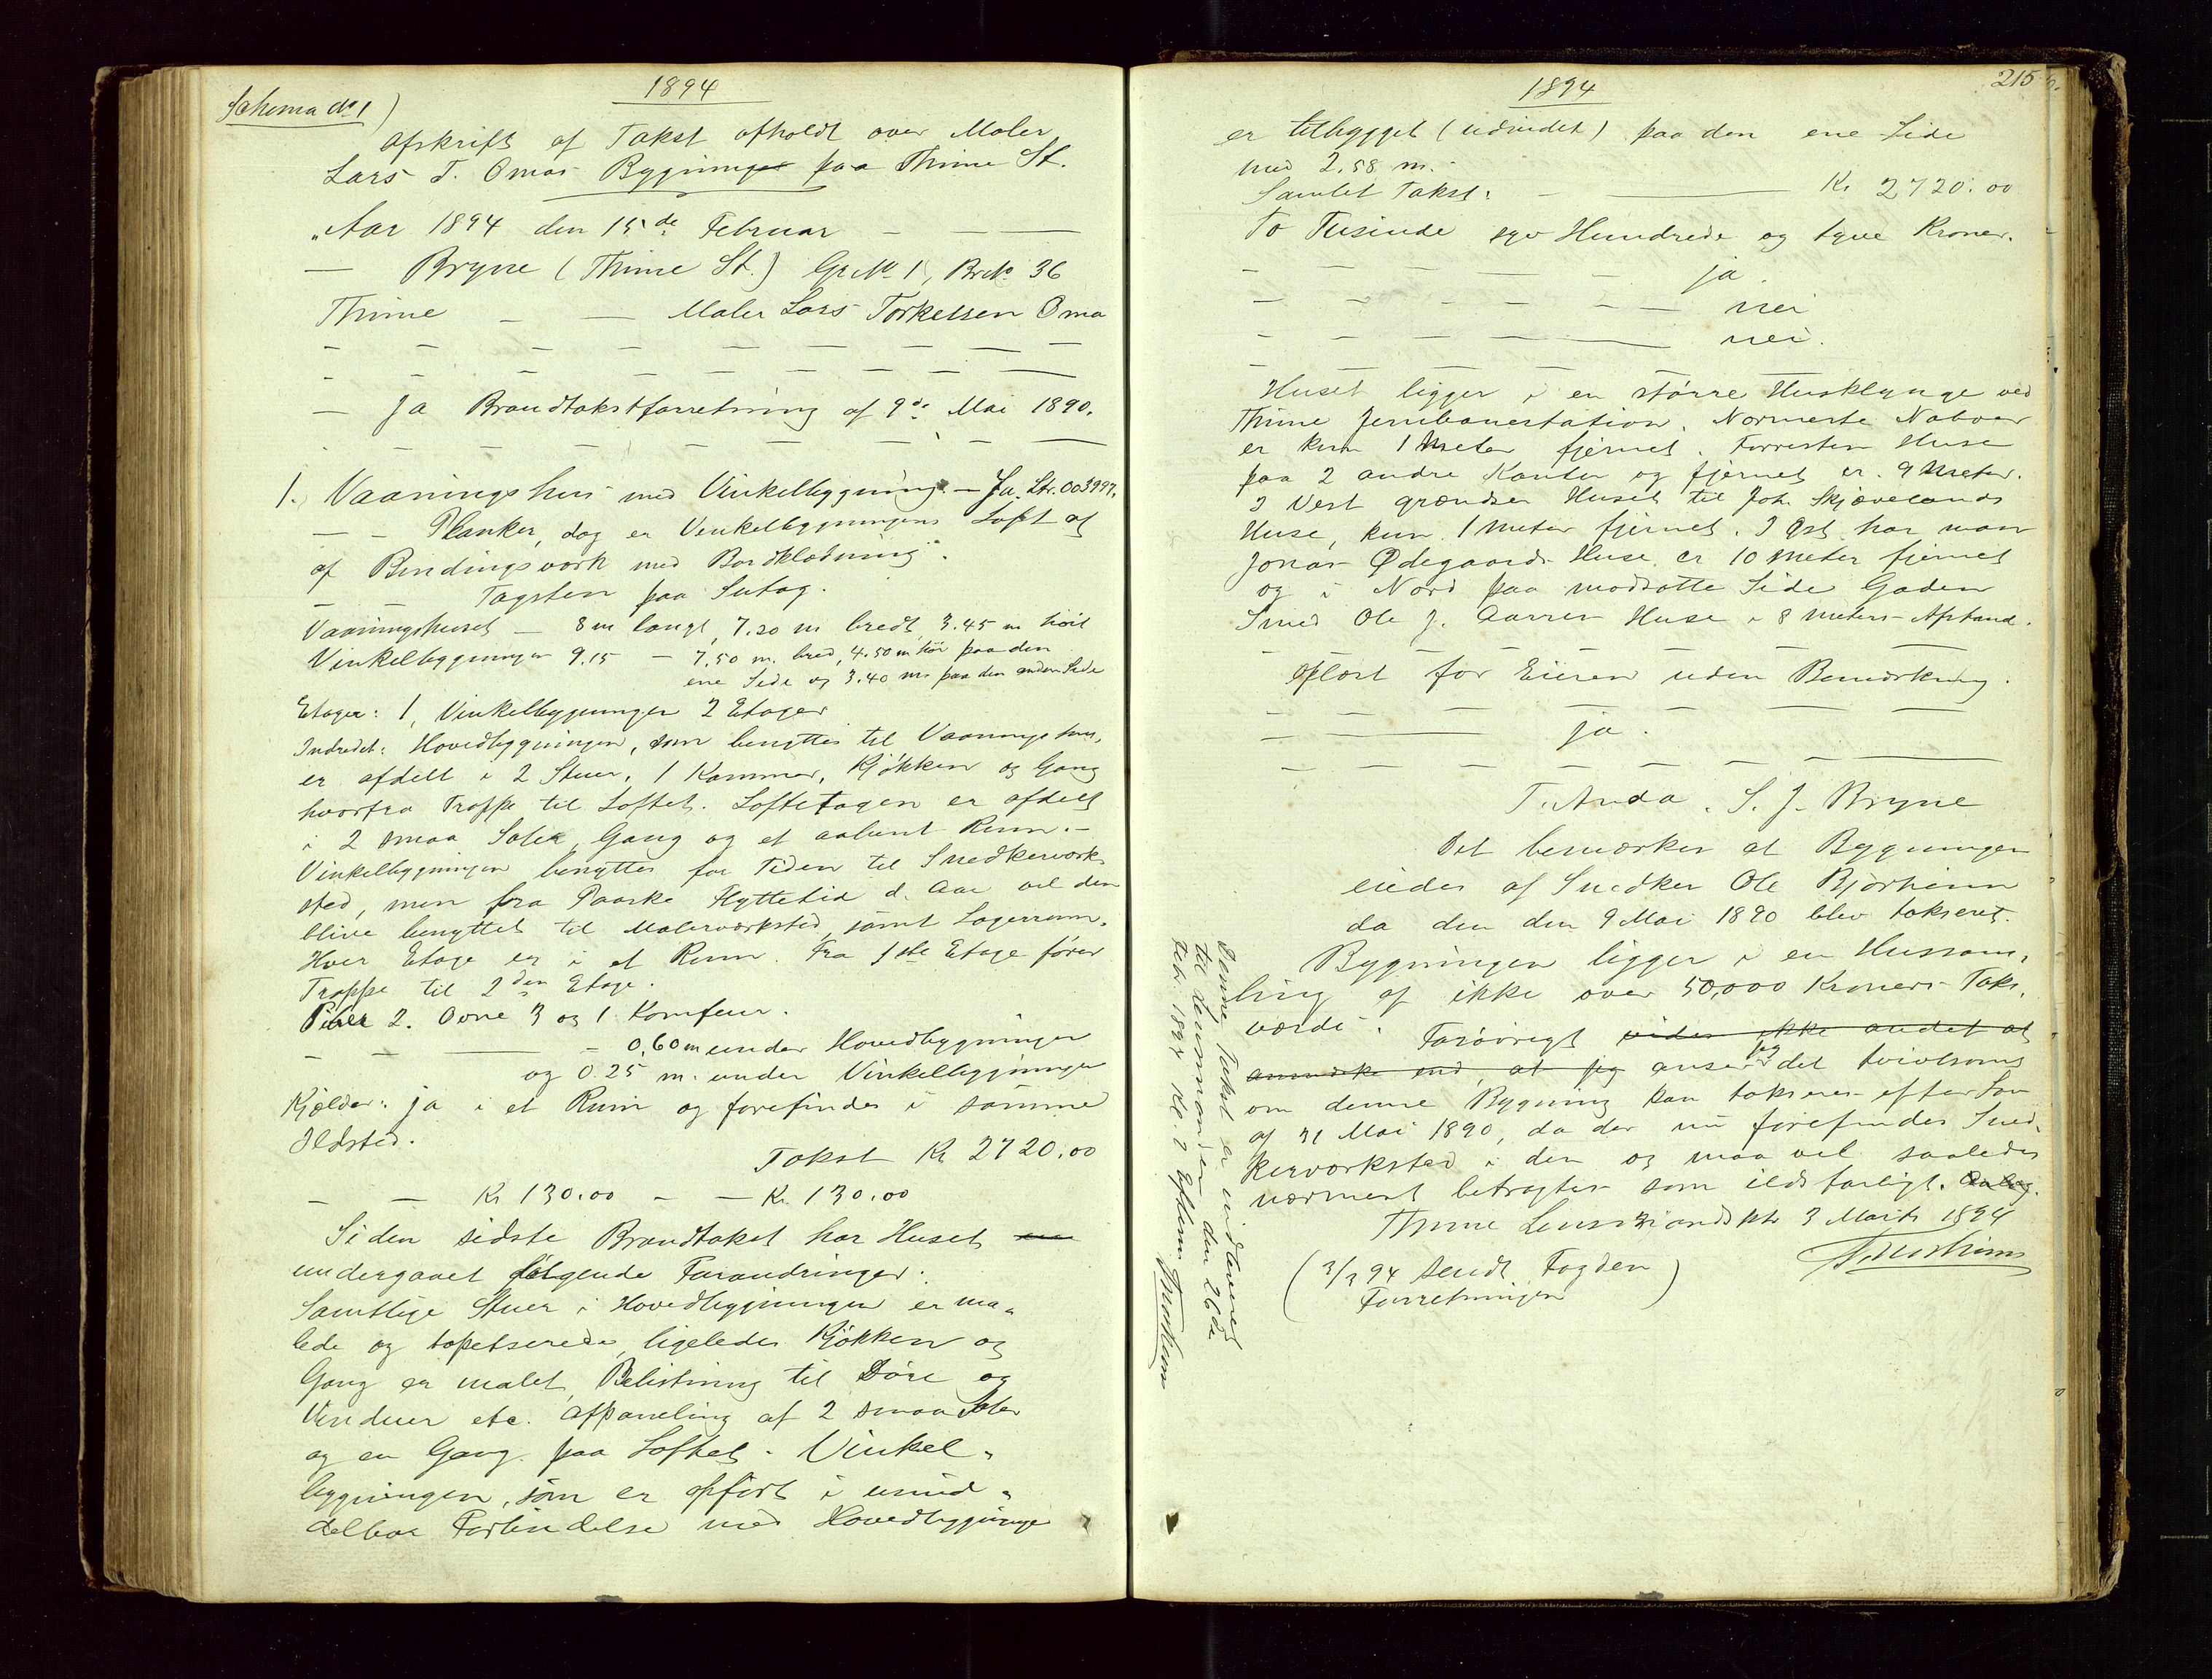 1894
Schema No 1)
Afskrift af Takst afholdt over Maler
Lars T. Omas Bygninger paa Thime St.
"Aar 1894 den 15de Februar – — —
— Bryne (Thime St.) Gr No 1, Br No 36
Thime – — Maler Lars Torkelsen Oma
– – – – – – – –
– – – – – – – –
— Ja Brandtakstforretning af 9de Mai 1890.
– – – – – – – –
1. Vaaningshus med Vinkelbygning. – Ja. Ltr. 003997.
– – Planker, dog er Vinkelbygningens Loft af
af Bindingsværk med Bordklædning.
– – Tagsten paa Sutag.
Vaaningshuset — 8 m langt, 7.20 m bredt, 3.45 m höit
Vinkelbygningen 9.15 – 7.50 m. bred, 4.50 m höi paa den
ene Side og 3.40 m paa den anden Side
Etager: 1, Vinkelbygningen 2 Etager
Indredet: Hovedbygningen, som benyttes til Vaaningshus,
er afdelt i 2 Stuer, 1 Kammer, Kjökken og Gang
hvorfra Trappe til Loftet. Loftetagen er afdelt
i 2 smaa Saler, Gang og et aabent Rum. –
Vinkelbygningen benyttes for Tiden til Snedkerværk-
sted, men fra Paaske Flyttetid d. Aar vil den
blive benyttet til Malerværksted, samt Lagerrum.
Hver Etage er i et Rum. Fra 1ste Etage förer
Trappe til 2den Etage.
Piber 2. Ovne 3 og 1 Komfur.
– – — – 0,60 m under Hovedbygningen
og 0.25 m. under Vinkelbygningen
Kjælder: ja i et Rum og forefindes i samme
Ildsted.
Takst Kr 2720,00
– – Kr 130.00 – – Kr. 130.00
Siden sidste Brandtakst har Huset
undergaaet fölgende Forandringer:
Samtlige Stuer i Hovedbygningen er ma-
lede og tapetserede, ligeledes Kjökken og
Gang er malet, Belistning til Döre og
Vinduer etc. Afpaneling af 2 smaa Saler
og en Gang paa Loftet. Vinkel-
bygningen, som er opfört i umid-
delbar Forbindelse med Hovedbygningen
1894
215
er tilbygget (udvidet) paa den ene Side
med 2.58 m.
Samlet Takst: – — Kr 2720.00
To Tusinde syv Hundrede og tyve Kroner.
– – – – – ja.
– – – – – – nei
– – – – — nei.
– – – – – – –
Huset ligger i en större Husklynge ved
Thime Jernbanestation. Nærmeste Naboer
er kun 1 Meter fjernet. Forresten Huse
paa 2 andre Kanter og fjernet er 9 Meter.
I Vest grændser Huset til Joh. Skjævelands
Huse, kun 1 Meter fjernet. I Öst har man
Jonas Ödegaards Huse er 10 Meter fjernet
og i Nord paa modsatte Side Gaden
Smed Ole J. Aarres Huse i 8 Meters Afstand.
– – – – – – –
Oplæst for Eieren uden Bemærkning.
– – – – – –
– – — ja.
– – – – – – – —
T. Anda. S. J. Bryne
Det bemærkes at Bygningen
eiedes af Snedker Ole Bjorheim
da den den 9 Mai 1890 blev takseret.
Bygningen ligger i en Hussam-
ling af ikke over 50,000 Kroners Takst-
værdi. Forövrigt vides ikke andet at
anmærke end, at jeg anser jeg det tvivlsomt
om denne Bygning kan takseres efter Lov
af 31 Mai 1890, da der nu forefindes Sned-
kerværksted i den og maa vel saaledes
nærmest betragtes som ildsfarligt.
Thime Lensmandsktr 3 Marts 1894
(3/3 94 sendt Fogden
Forretningen)
Denne Takst er indleveret
til Lensmanden den 26de
Febr. 1894 Kl. 2 Efterm.